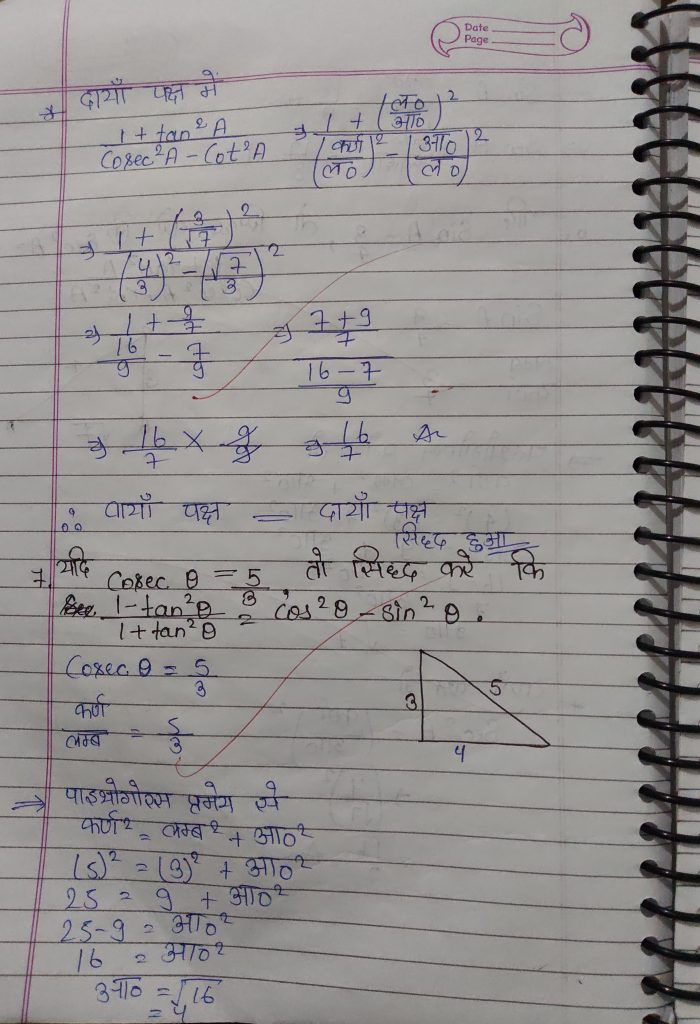 Date
Page
दायाँ पक्ष में
1 + tan²A / Cosec²A - Cot²A ⇒ 1 + (ल०/आ०)² / (कर्ण/ल०)² - (आ०/ल०)²
⇒ 1 + (3/√7)² / (4/3)² - (√7/3)²
⇒ 1 + 9/7 / 16/9 - 7/9 ⇒ 7+9/7 / 16-7/9
⇒ 16/7 × 9/9 ⇒ 16/7
∴ वायाँ पक्ष = दायाँ पक्ष
सिद्द हुआ
7. यदि Cosec θ = 5/3, तो सिद्द करे कि
1-tan²θ / 1+tan²θ = Cos²θ - sin²θ.
Cosec θ = 5/3
कर्ण/लम्ब = 5/3
3
5
4
⇒ पाइथोगोरस प्रमेय से
कर्ण² = लम्ब² + आ०²
(5)² = (3)² + आ०²
25 = 9 + आ०²
25-9 = आ०²
16 = आ०²
आ० = √16
= 4